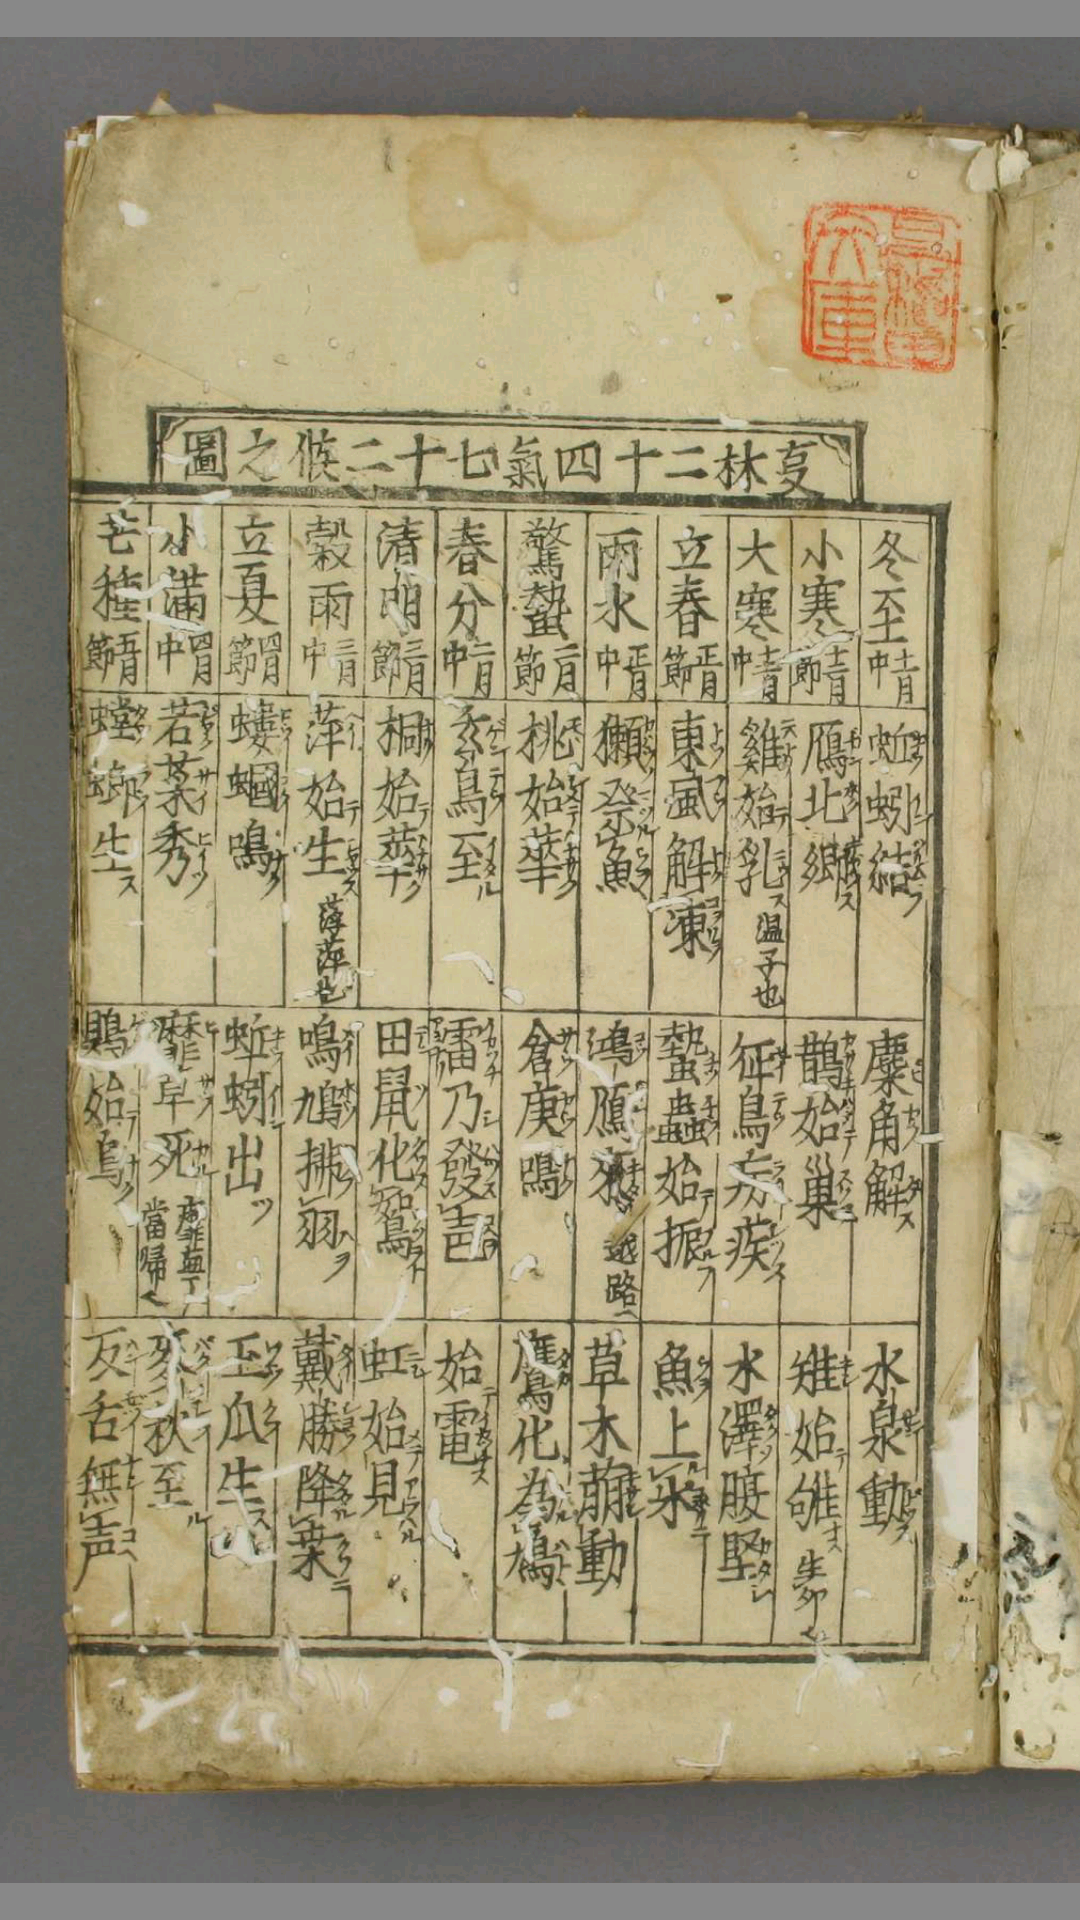 夏林二十四氣七十二候之圖
冬至 十一月中 蚯蚓結 麋角解 水泉動
小寒 十二月節 鴈北郷 鵲始巢 雉始雊 生卵也
大寒 十二月中 雞始乳 温子也 征鳥疾 水澤腹堅
立春 正月節 東風解凍 蟄蟲始振 魚上氷
雨水 正月中 獺祭魚 鴻鴈來 越路へ 草木萠動
驚蟄 二月節 桃始華 倉庚鳴 鷹化為鳩
春分 二月中 玄鳥至 雷乃發声 始電
清明 三月節 桐始華 田鼠化鴽 虹始見
穀雨 三月中 萍始生 萍也 鳴鳩拂羽 戴勝降桑
立夏 四月節 螻蟈鳴 蚯蚓出 王瓜生
小滿 四月中 若菜秀 靡草死 當歸也 麥秋至
芒種 五月節 螳螂生 鵙始鳴 反舌無声
文庫